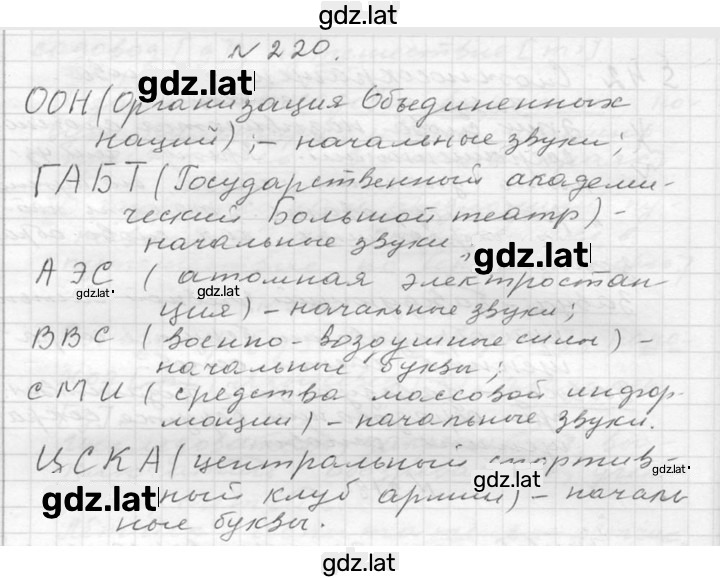 gdz.lat
N 220.
gdz.lat
ООН (Организация Объединенных
наций);- начальные звуки;
ГАБТ (Государственный академи-
ческий Большой театр) -
начальные звуки;
gdz.lat
АЭС (атомная электростан
gdz.lat
gdz.lat
ция) - начальные звуки;
ВВС (военно-воздушные силы) -
начальные буквы;
СМИ (средства массовой инфор-
мации) - начальные звуки.
ЦСКА (центральный спортив-
gdz.lat
gdz.lat
ный клуб армии) - началь
ные буквы.
gdz.lat